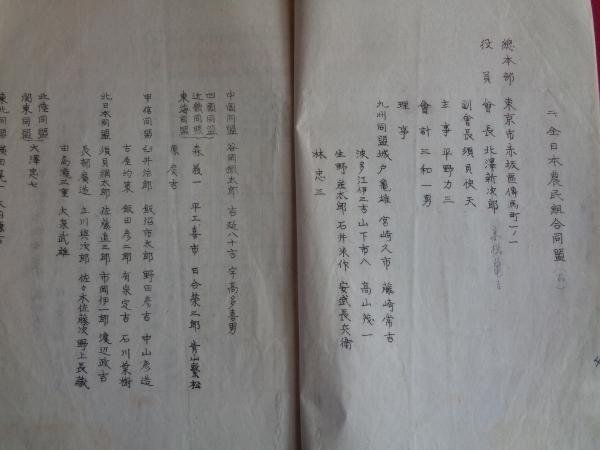 二、全日本農民組合同盟
總本部 東京市赤坂區傳馬町一ノ一
役員 會長 北澤新次郎
副會長 須貝快天
主事 平野力三
會計 三和一男
理事
九州同盟 城戸亀雄 宮崎久市 藤崎常吉
波多江伊之吉 山下市八 高山茂一
生野荘太郎 石井米作 安武長兵衛
林忠三
中國同盟 谷岡熊太郎 吉延八十吉 宇高多喜男
四國同盟
近畿同盟 森義一 平工喜市 日合榮三郎 青山繁松
東海同盟 原彦吉
甲信同盟 臼井治郎 飯沼市太郎 野田彦吉 中山彦造
古屋均策 飯田彦二郎 有泉定吉 石川葉樹
北日本同盟 須貝鋼太郎 佐藤直三郎 市岡伊一郎 渡辺政吉
長部廣造 立川與次郎 佐々木佐藤次 野上長藏
田高瀧三重 大泉武雄
北陸同盟
關東同盟 大澤忠七
東北同盟